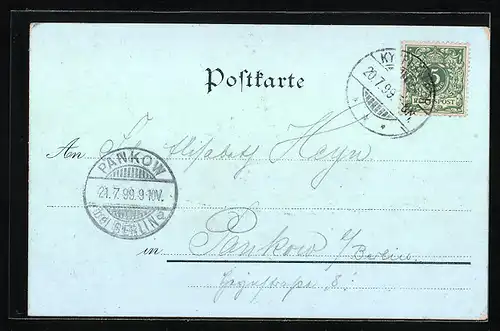 Postkarte
KY
20.7.99
5
REICHSPOST
An Elisabeth Heyn
PANKOW
21.7.99.9-10V.
(bei) BERLIN
in Pankow b/Berlin
8